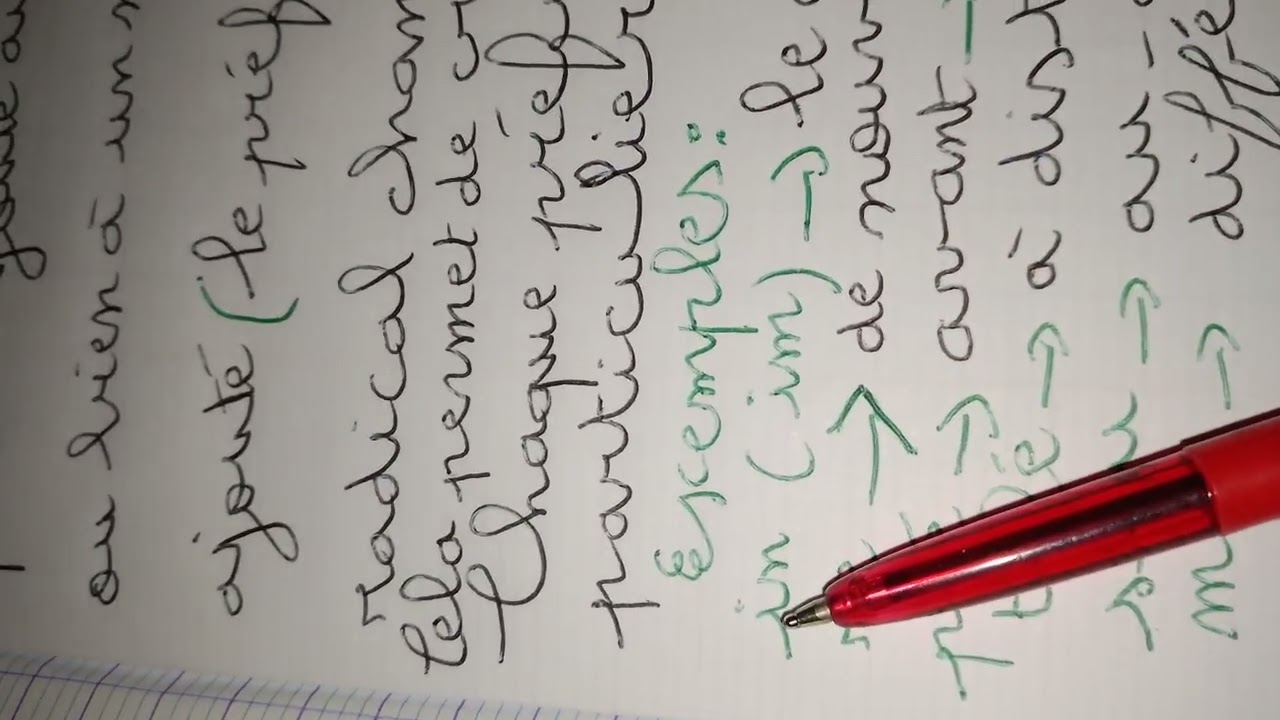 ou bien à un
ajouté (le préf
radical chan
Cela permet de cr
Chaque préf
particulier
Exemples:
in (im) → le
→ de nouv
pré → avant →
télé → à dist
→ au-
→ diffé